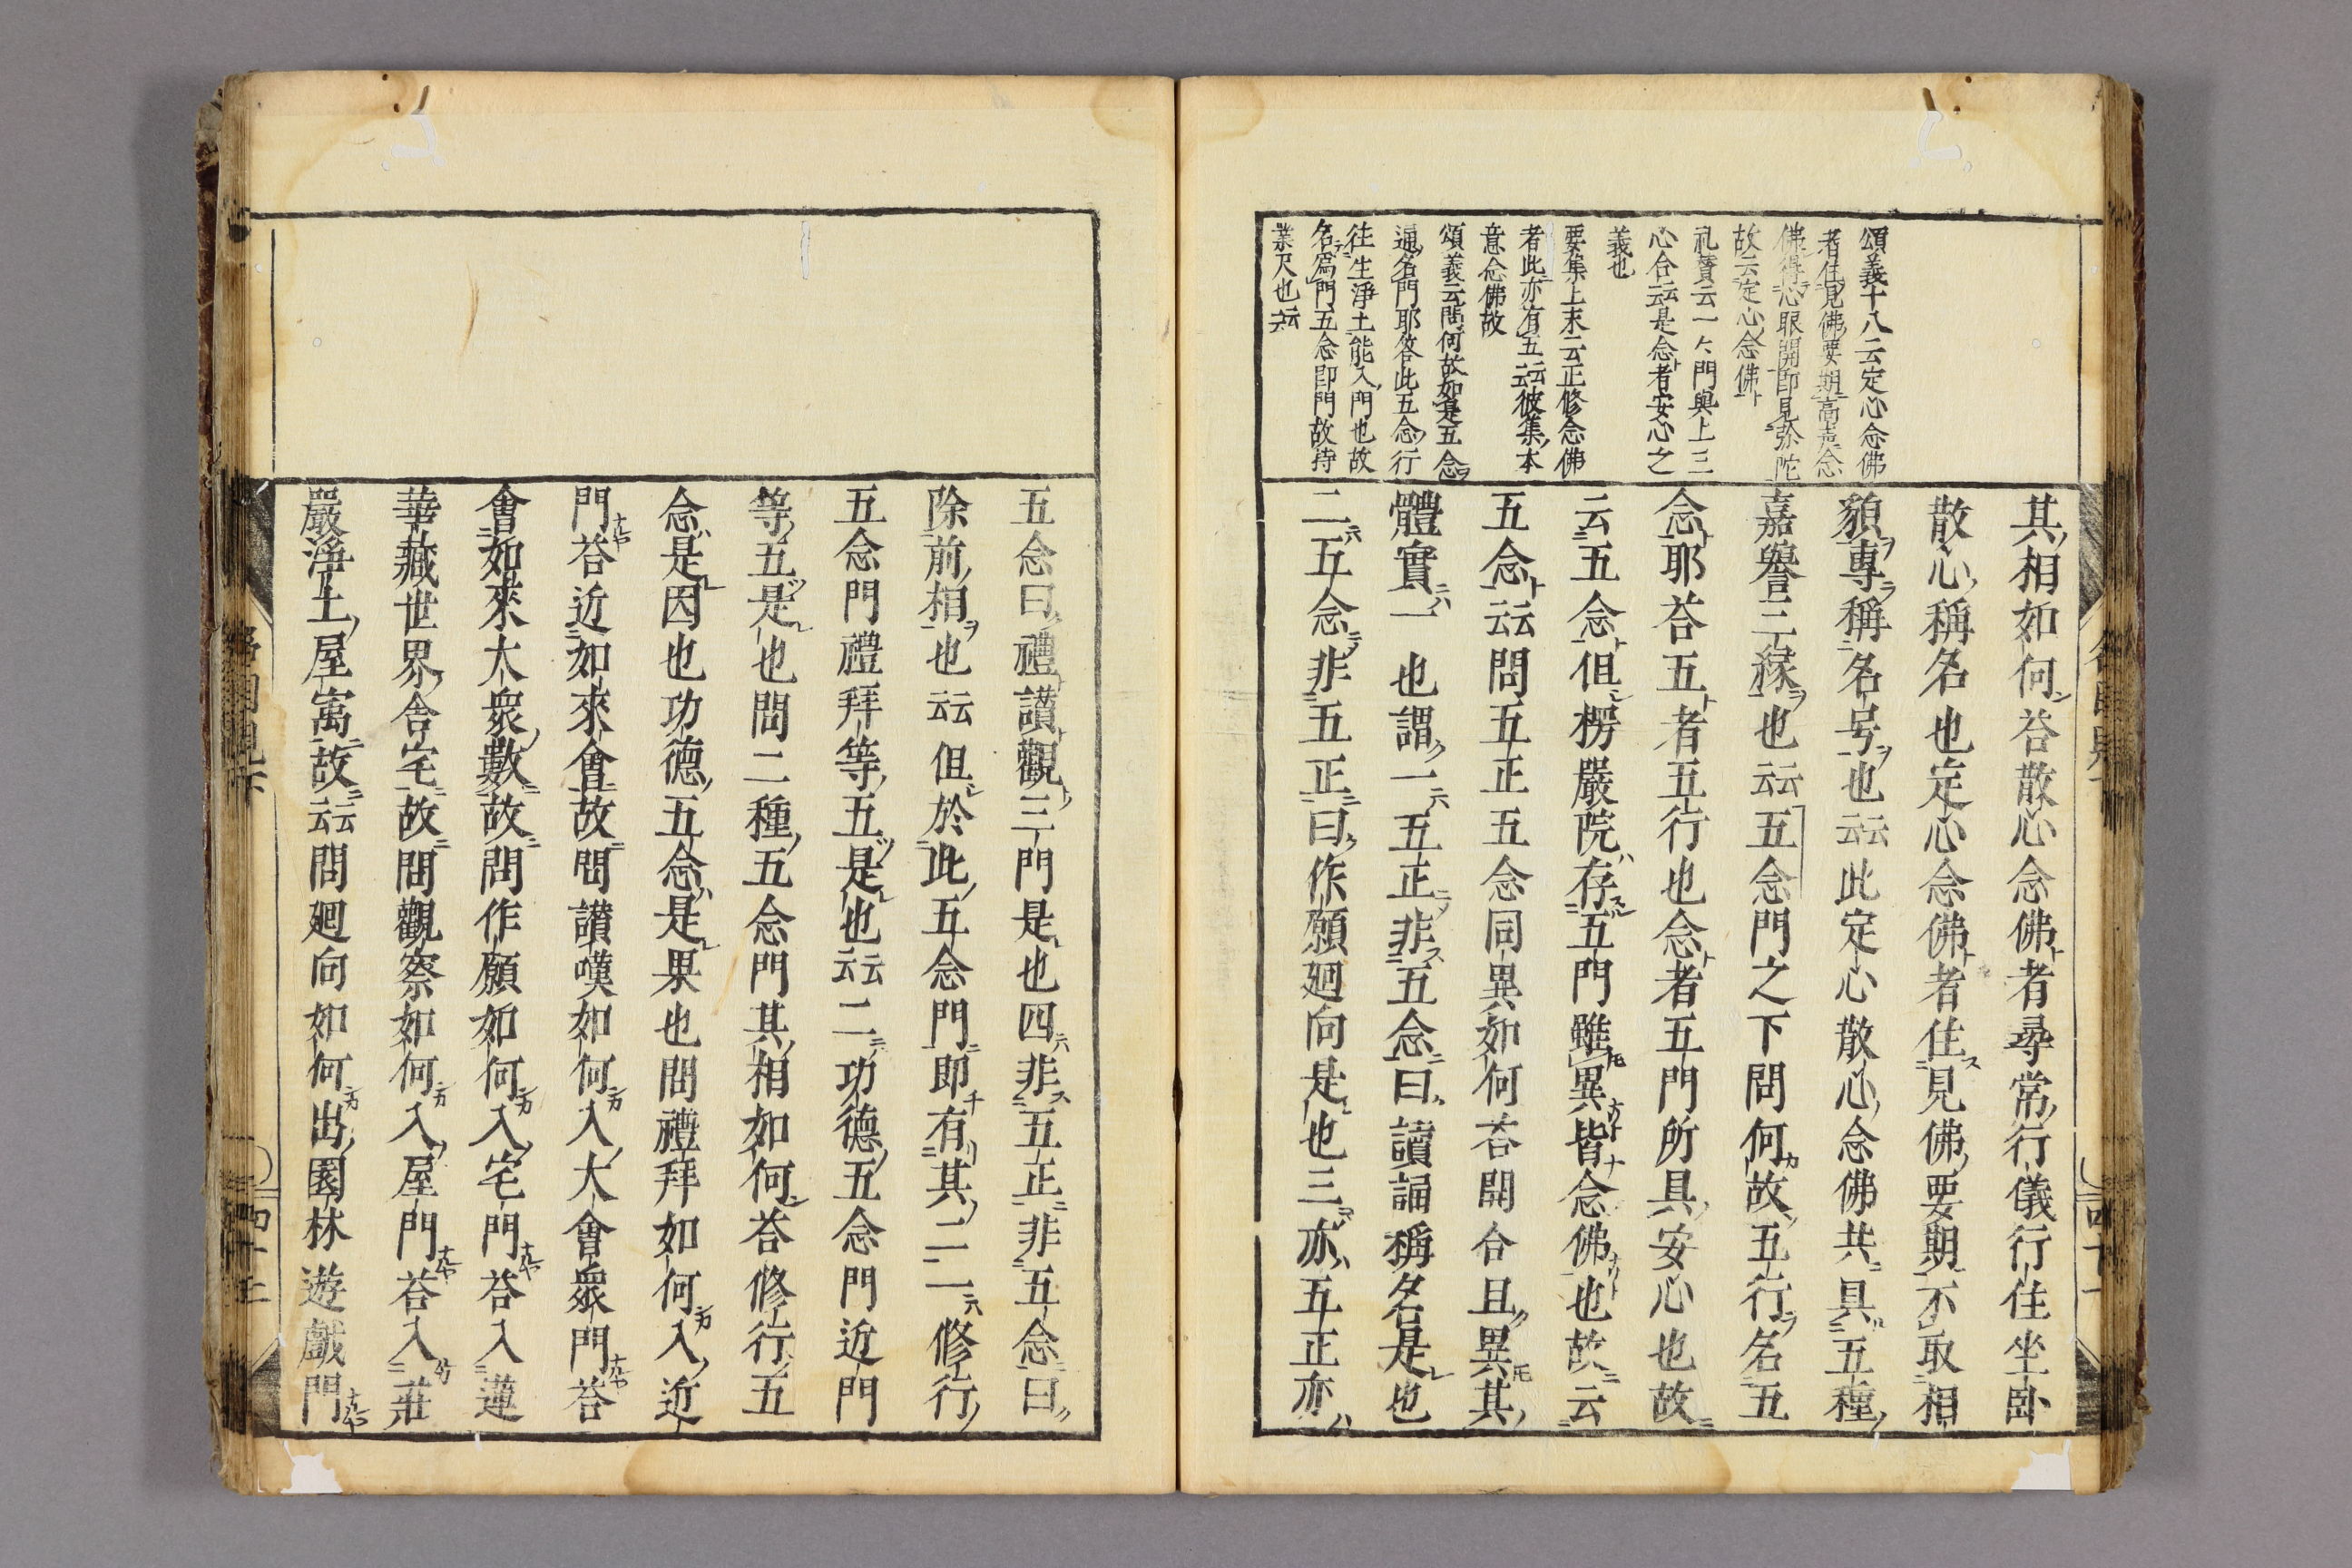 頌義十八云定心念佛
者住見佛要期高声念
佛得心眼開即見弥陀
故云定心念佛
礼讚云一々門與上三
心合云云是念者安心之
義也
要集上末云正修念佛
者此亦有五云云彼集本
意念佛故
頌義云問何故如是五念
通名門耶答此五念行
往生淨土能入門也故
名爲門五念即門故持
業尺也云云
其相如何答散心念佛者尋常行儀行住坐臥
散心稱名也定心念佛者住見佛要期不取相
貌專稱名号也云云此定心散心念佛共具五種
嘉譽三縁也云云五念門之下問何故五行名五
念耶答五者五行也念者五門所具安心也故
云五念但楞嚴院存五門雖異皆念佛也故云
五念云云問五正五念同異如何答開合且異其
體實一也謂一五正非五念曰讀誦稱名是也
二五念非五正曰作願廻向是也三亦五正亦
五念曰禮讃觀三門是也四非五正非五念曰
除前相也云云但於此五念門即有其二一修行
五念門禮拜等五是也云云二功德五念門近門
等五是也問二種五念門其相如何答修行五
念是因也功德五念是果也問禮拜如何入近
門答近如來會故問讃嘆如何入大會衆門答
會如來大衆數故問作願如何入宅門答入蓮
華藏世界舍宅故問觀察如何入屋門答入莊
嚴淨土屋寓故云云問廻向如何出園林遊戯門